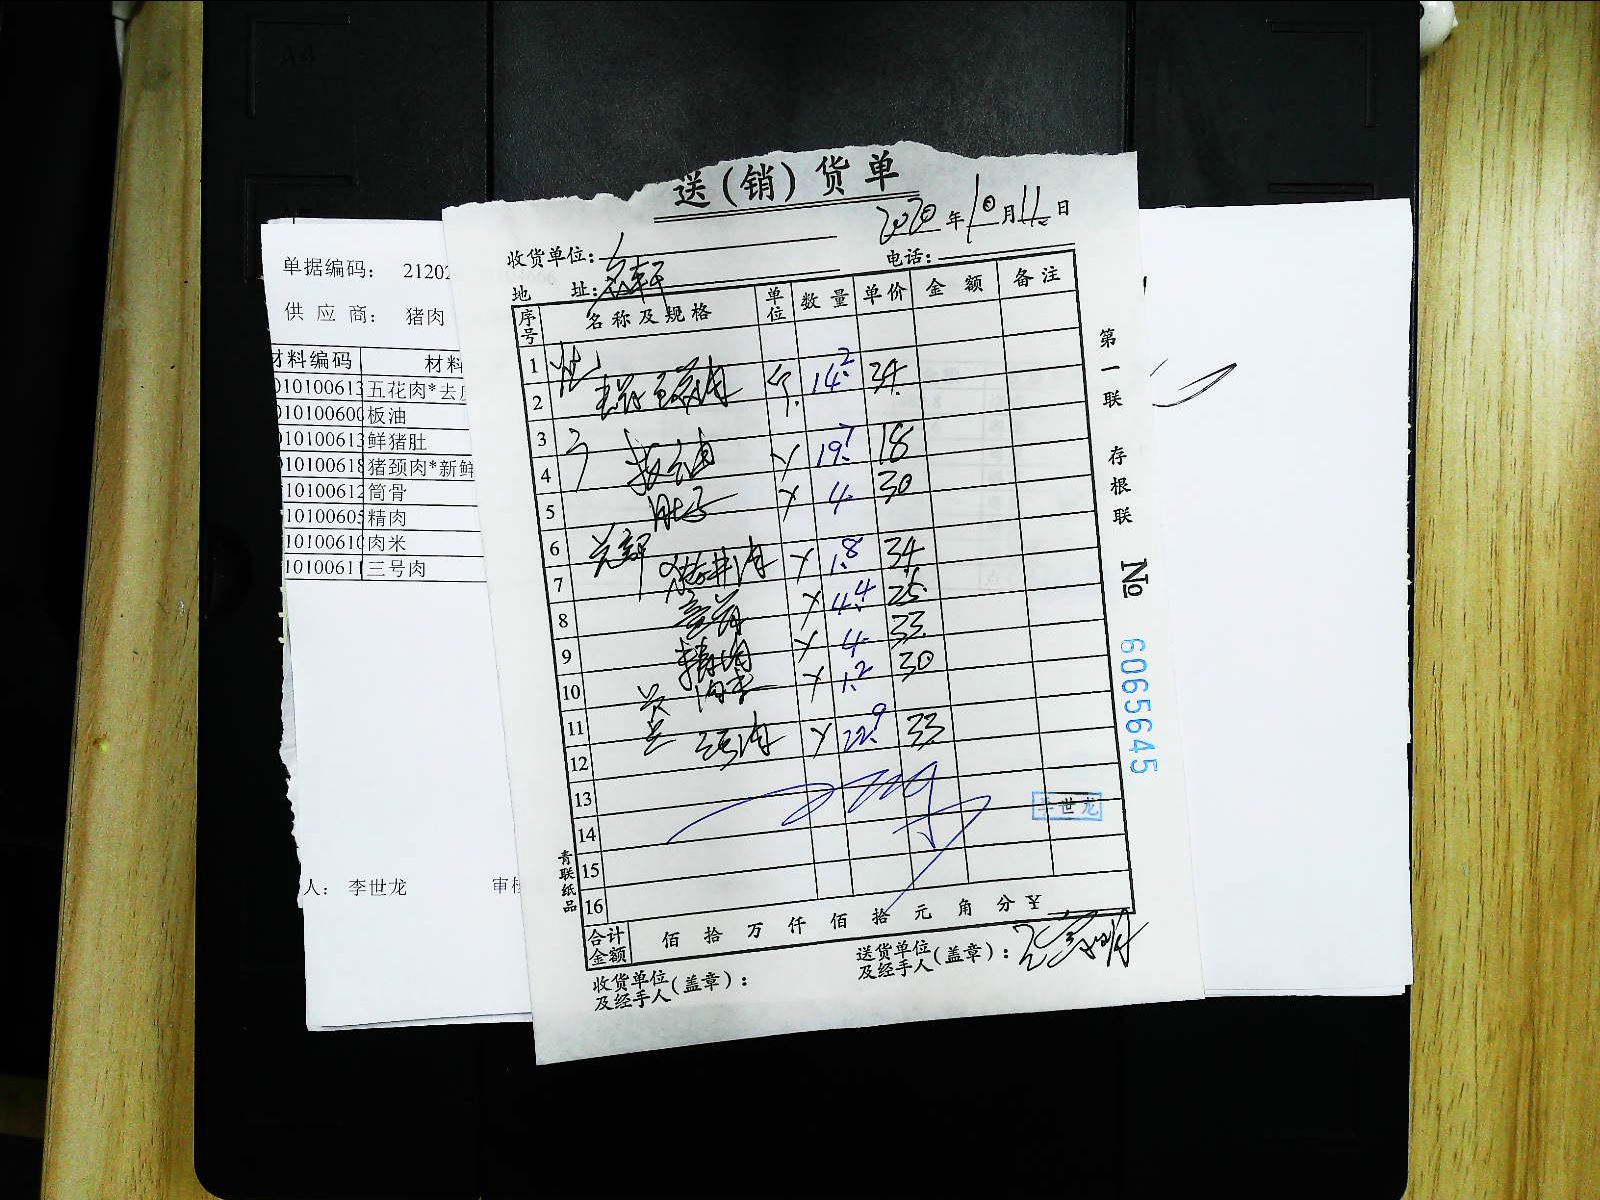 送(销)货单
2020年10月11日
收货单位:
电话:
地 址:
单据编码: 21202
供 应 商: 猪肉
材料编码 材料
010100613 五花肉*去
010100600 板油
010100613 鲜猪肚
010100618 猪颈肉*新鲜
10100612 筒骨
10100605 精肉
10100610 肉米
10100611 三号肉
人: 李世龙 审核
序号 名称及规格 单位 数量 单价 金额 备注
1
2 五花肉 斤 14.2 34
3
4 板油 19.7 18
5 肚子 4 30
6
7 1.8 34
8 4.4 25
9 精肉 4 33
10 肉米 1.2 30
11
12 三号肉 22.9 33
13
14
15
16
李世龙
合计金额 佰 拾 万 仟 佰 拾 元 角 分 ¥
收货单位及经手人(盖章):
送货单位及经手人(盖章):
青联纸品
第一联 存根联
No 6065645